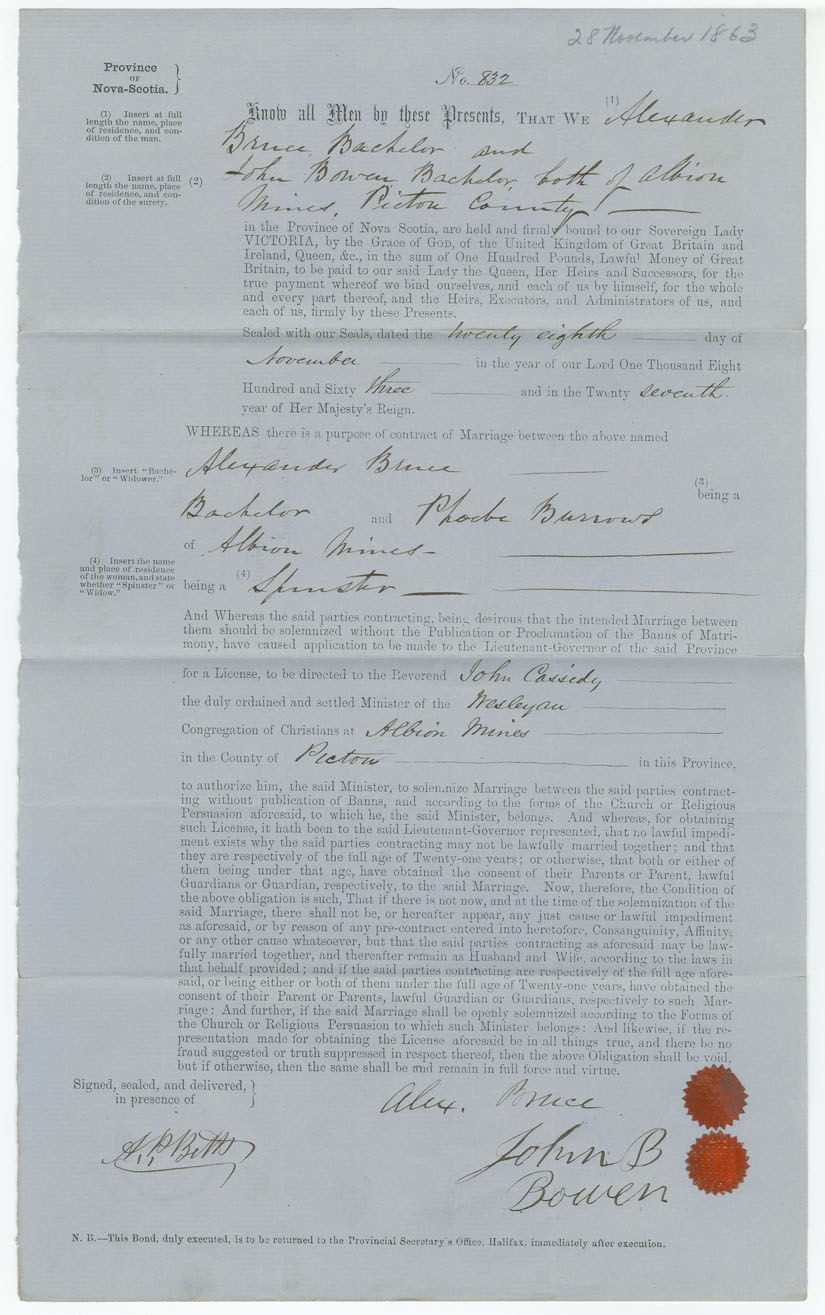 28 November 1863
Province
OF
Nova-Scotia.
No. 832
(1) Insert at full
length the name, place
of residence, and con-
dition of the man.
Know all Men by these Presents, THAT WE (1) Alexander
Bruce, Bachelor and
(2) Insert at full
length the name, place
of residence, and con-
dition of the surety.
(2) John Bowen Bachelor, both of Albion
Mines, Pictou County
in the Province of Nova Scotia, are held and firmly bound to our Sovereign Lady
VICTORIA, by the Grace of GOD, of the United Kingdom of Great Britain and
Ireland, Queen, &c., in the sum of One Hundred Pounds, Lawful Money of Great
Britain, to be paid to our said Lady the Queen, Her Heirs and Successors, for the
true payment whereof we bind ourselves, and each of us by himself, for the whole
and every part thereof, and the Heirs, Executors, and Administrators of us, and
each of us, firmly by these Presents.
Sealed with our Seals, dated the twenty eighth day of
November in the year of our Lord One Thousand Eight
Hundred and Sixty three and in the Twenty seventh
year of Her Majesty's Reign.
WHEREAS there is a purpose of contract of Marriage between the above named
(3) Insert "Bache-
lor" or "Widower."
Alexander Bruce
(3)
being a
Bachelor and Phoebe Burrows
of Albion Mines-
(4) Insert the name
and place of residence
of the woman, and state
whether "Spinster" or
"Widow."
being a (4) Spinster
And Whereas the said parties contracting, being desirous that the intended Marriage between
them should be solemnized without the Publication or Proclamation of the Banns of Matri-
mony, have caused application to be made to the Lieutenant-Governor of the said Province
for a License, to be directed to the Reverend John Cassidy
the duly ordained and settled Minister of the Wesleyan
Congregation of Christians at Albion Mines
in the County of Pictou in this Province,
to authorize him, the said Minister, to solemnize Marriage between the said parties contract-
ing without publication of Banns, and according to the forms of the Church or Religious
Persuasion aforesaid, to which he, the said Minister, belongs. And whereas, for obtaining
such License, it hath been to the said Lieutenant-Governor represented, that no lawful impedi-
ment exists why the said parties contracting may not be lawfully married together; and that
they are respectively of the full age of Twenty-one years; or otherwise, that both or either of
them being under that age, have obtained the consent of their Parents or Parent, lawful
Guardians or Guardian, respectively, to the said Marriage. Now, therefore, the Condition of
the above obligation is such, That if there is not now, and at the time of the solemnization of the
said Marriage, there shall not be, or hereafter appear, any just cause or lawful impediment
as aforesaid, or by reason of any pre-contract entered into heretofore, Consanguinity, Affinity,
or any other cause whatsoever, but that the said parties contracting as aforesaid may be law-
fully married together, and thereafter remain as Husband and Wife, according to the laws in
that behalf provided; and if the said parties contracting are respectively of the full age afore-
said, or being either or both of them under the full age of Twenty-one years, have obtained the
consent of their Parent or Parents, lawful Guardian or Guardians, respectively to such Mar-
riage: And further, if the said Marriage shall be openly solemnized according to the Forms of
the Church or Religious Persuasion to which such Minister belongs: And likewise, if the re-
presentation made for obtaining the License aforesaid be in all things true, and there be no
fraud suggested or truth suppressed in respect thereof, then the above Obligation shall be void,
but if otherwise, then the same shall be and remain in full force and virtue.
Signed, sealed, and delivered,
in presence of
Alex. Bruce
John B
Bowen
N. B.—This Bond, duly executed, is to be returned to the Provincial Secretary's Office, Halifax, immediately after execution.